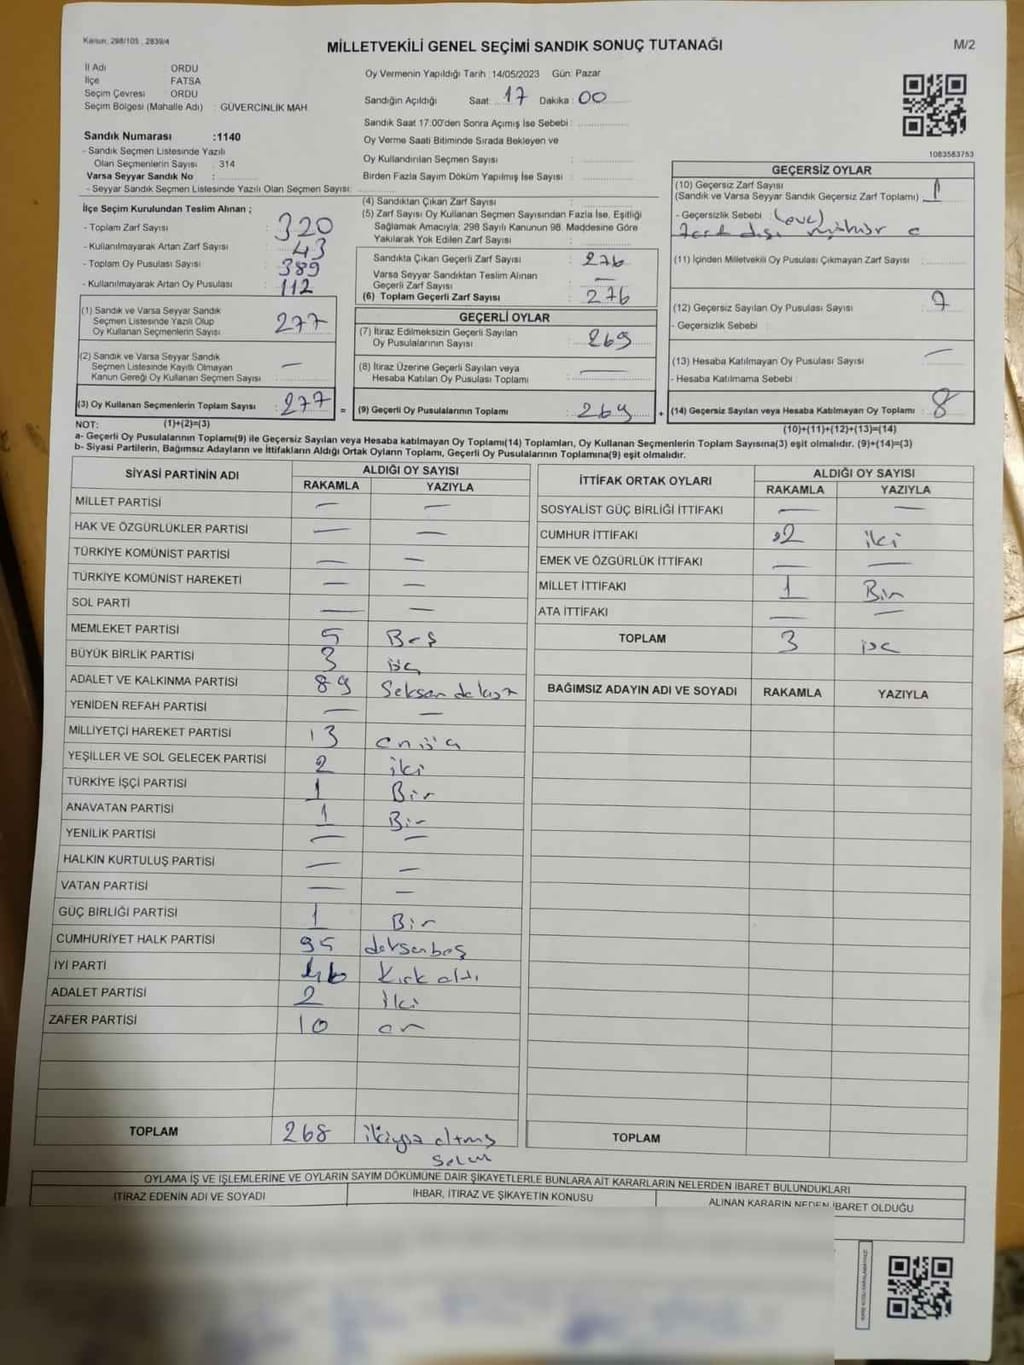 Kanun, 298/105 , 2839/4
MİLLETVEKİLİ GENEL SEÇİMİ SANDIK SONUÇ TUTANAĞI
M/2
İl Adı ORDU
İlçe FATSA
Seçim Çevresi ORDU
Seçim Bölgesi (Mahalle Adı) : GÜVERCİNLİK MAH
Sandık Numarası :1140
- Sandık Seçmen Listesinde Yazılı
Olan Seçmenlerin Sayısı : 314
Varsa Seyyar Sandık No :
- Seyyar Sandık Seçmen Listesinde Yazılı Olan Seçmen Sayısı:
Oy Vermenin Yapıldığı Tarih :14/05/2023 Gün: Pazar
Sandığın Açıldığı Saat : 17 Dakika : 00
Sandık Saat 17:00'den Sonra Açımış İse Sebebi :
Oy Verme Saati Bitiminde Sırada Bekleyen ve
Oy Kullandırılan Seçmen Sayısı :
Birden Fazla Sayım Döküm Yapılmış İse Sayısı :
1083583753
İlçe Seçim Kurulundan Teslim Alınan ;
- Toplam Zarf Sayısı : 320
- Kullanılmayarak Artan Zarf Sayısı : 43
- Toplam Oy Pusulası Sayısı : 389
- Kullanılmayarak Artan Oy Pusulası : 112
(1) Sandık ve Varsa Seyyar Sandık
Seçmen Listesinde Yazılı Olup
Oy Kullanan Seçmenlerin Sayısı : 277
(2) Sandık ve Varsa Seyyar Sandık
Seçmen Listesinde Kayıtlı Olmayan
Kanun Gereği Oy Kullanan Seçmen Sayısı : —
(3) Oy Kullanan Seçmenlerin Toplam Sayısı : 277
(4) Sandıktan Çıkan Zarf Sayısı :
(5) Zarf Sayısı Oy Kullanan Seçmen Sayısından Fazla İse, Eşitliği
Sağlamak Amacıyla; 298 Sayılı Kanunun 98. Maddesine Göre
Yakılarak Yok Edilen Zarf Sayısı :
Sandıkta Çıkan Geçerli Zarf Sayısı : 276
Varsa Seyyar Sandıktan Teslim Alınan
Geçerli Zarf Sayısı : —
(6) Toplam Geçerli Zarf Sayısı : 276
GEÇERLİ OYLAR
(7) İtiraz Edilmeksizin Geçerli Sayılan
Oy Pusulalarının Sayısı : 269
(8) İtiraz Üzerine Geçerli Sayılan veya
Hesaba Katılan Oy Pusulası Toplamı : —
= (9) Geçerli Oy Pusulalarının Toplamı : 269
GEÇERSİZ OYLAR
(10) Geçersiz Zarf Sayısı
(Sandık ve Varsa Seyyar Sandık Geçersiz Zarf Toplamı) : 1
- Geçersizlik Sebebi : (evet)
Zarf dışı mühür
(11) İçinden Milletvekili Oy Pusulası Çıkmayan Zarf Sayısı :
(12) Geçersiz Sayılan Oy Pusulası Sayısı : 7
- Geçersizlik Sebebi :
(13) Hesaba Katılmayan Oy Pusulası Sayısı : —
- Hesaba Katılmama Sebebi :
+ (14) Geçersiz Sayılan veya Hesaba Katılmayan Oy Toplamı : 8
NOT: (1)+(2)=(3)
(10)+(11)+(12)+(13)=(14)
a- Geçerli Oy Pusulalarının Toplamı(9) ile Geçersiz Sayılan veya Hesaba katılmayan Oy Toplamı(14) Toplamları, Oy Kullanan Seçmenlerin Toplam Sayısına(3) eşit olmalıdır. (9)+(14)=(3)
b- Siyasi Partilerin, Bağımsız Adayların ve İttifakların Aldığı Ortak Oyların Toplamı, Geçerli Oy Pusulalarının Toplamına(9) eşit olmalıdır.
SİYASİ PARTİNİN ADI ALDIĞI OY SAYISI
RAKAMLA YAZIYLA
MİLLET PARTİSİ — —
HAK VE ÖZGÜRLÜKLER PARTİSİ — —
TÜRKİYE KOMÜNİST PARTİSİ — —
TÜRKİYE KOMÜNİST HAREKETİ — —
SOL PARTİ — —
MEMLEKET PARTİSİ 5 Beş
BÜYÜK BİRLİK PARTİSİ 3 üç
ADALET VE KALKINMA PARTİSİ 89 Seksen dokuz
YENİDEN REFAH PARTİSİ — —
MİLLİYETÇİ HAREKET PARTİSİ 13 onüç
YEŞİLLER VE SOL GELECEK PARTİSİ 2 iki
TÜRKİYE İŞÇİ PARTİSİ 1 Bir
ANAVATAN PARTİSİ 1 Bir
YENİLİK PARTİSİ — —
HALKIN KURTULUŞ PARTİSİ — —
VATAN PARTİSİ — —
GÜÇ BİRLİĞİ PARTİSİ 1 Bir
CUMHURİYET HALK PARTİSİ 95 doksanbeş
İYİ PARTİ 46 Kırk altı
ADALET PARTİSİ 2 İki
ZAFER PARTİSİ 10 on
TOPLAM 268 ikiyüz altmış
Sekiz
İTTİFAK ORTAK OYLARI ALDIĞI OY SAYISI
RAKAMLA YAZIYLA
SOSYALİST GÜÇ BİRLİĞİ İTTİFAKI — —
CUMHUR İTTİFAKI 2 iki
EMEK VE ÖZGÜRLÜK İTTİFAKI — —
MİLLET İTTİFAKI 1 Bir
ATA İTTİFAKI — —
TOPLAM 3 üç
BAĞIMSIZ ADAYIN ADI VE SOYADI RAKAMLA YAZIYLA
TOPLAM
OYLAMA İŞ VE İŞLEMLERİNE VE OYLARIN SAYIM DÖKÜMÜNE DAİR ŞİKAYETLERLE BUNLARA AİT KARARLARIN NELERDEN İBARET BULUNDUKLARI
İTİRAZ EDENİN ADI VE SOYADI İHBAR, İTİRAZ VE ŞİKAYETİN KONUSU ALINAN KARARIN NEDEN İBARET OLDUĞU